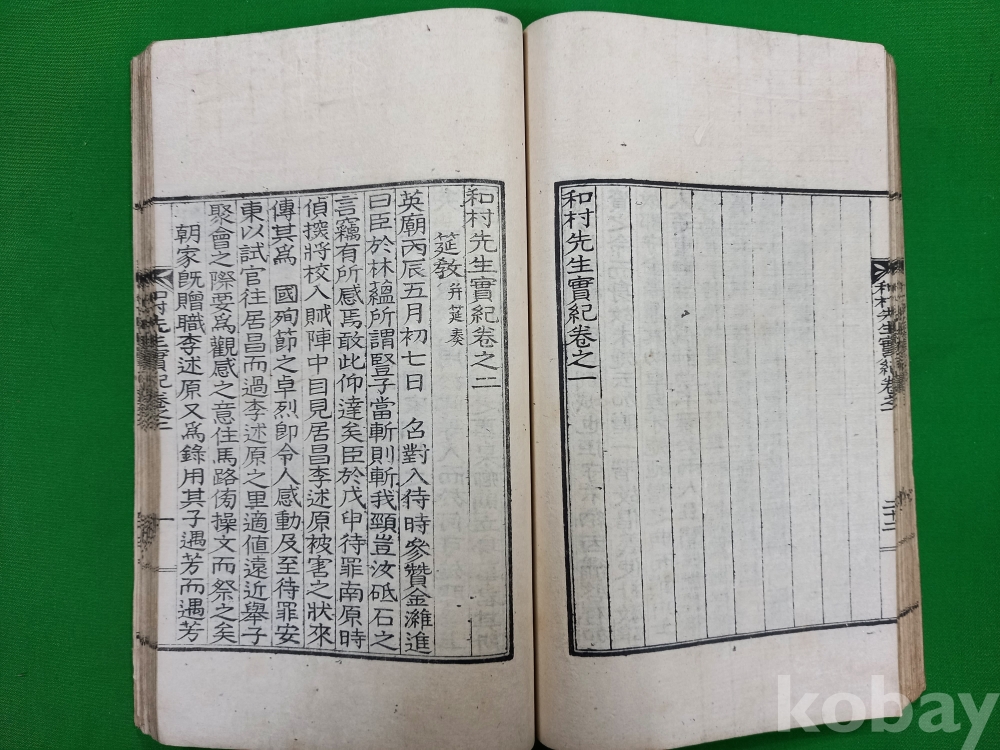 和村先生實紀卷之一
和村先生實紀卷之一
和村先生實紀卷之二
筵敎 幷筵奏
英廟丙辰五月初七日 召對入待時參贊金濰進
曰臣於林蘊所謂豎子當斬則斬我頸豈汝砥石之
言竊有所感焉敢此仰達矣臣於戊申待罪南原時
偵探將校入賊陣中目見居昌李述原被害之狀來
傳其爲 國殉節之卓烈卽令人感動及至待罪安
東以試官往居昌而過李述原之里適値遠近擧子
聚會之際要爲觀感之意住馬路傍操文而祭之矣
朝家旣贈職李述原又爲錄用其子遇芳而遇芳
和村先生實紀卷之二
一
kobay